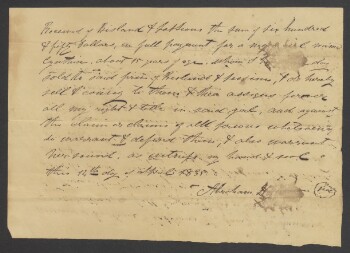 Received of Ruland & Jabbeens the sum of six hundred
& fifty Dollars, in full payment for a negro Girl named
about 15 years of age, whom I this day
sold to said firm of Ruland & I do hereby
sell & convey to them & their assigns forever
all my right & title in said girl, and against
the claim or claims of all persons whatsoever
to warrant & defend them, & also warrant
her sound, as witness my hand & seal
this 12th day of April 1835
Abraham